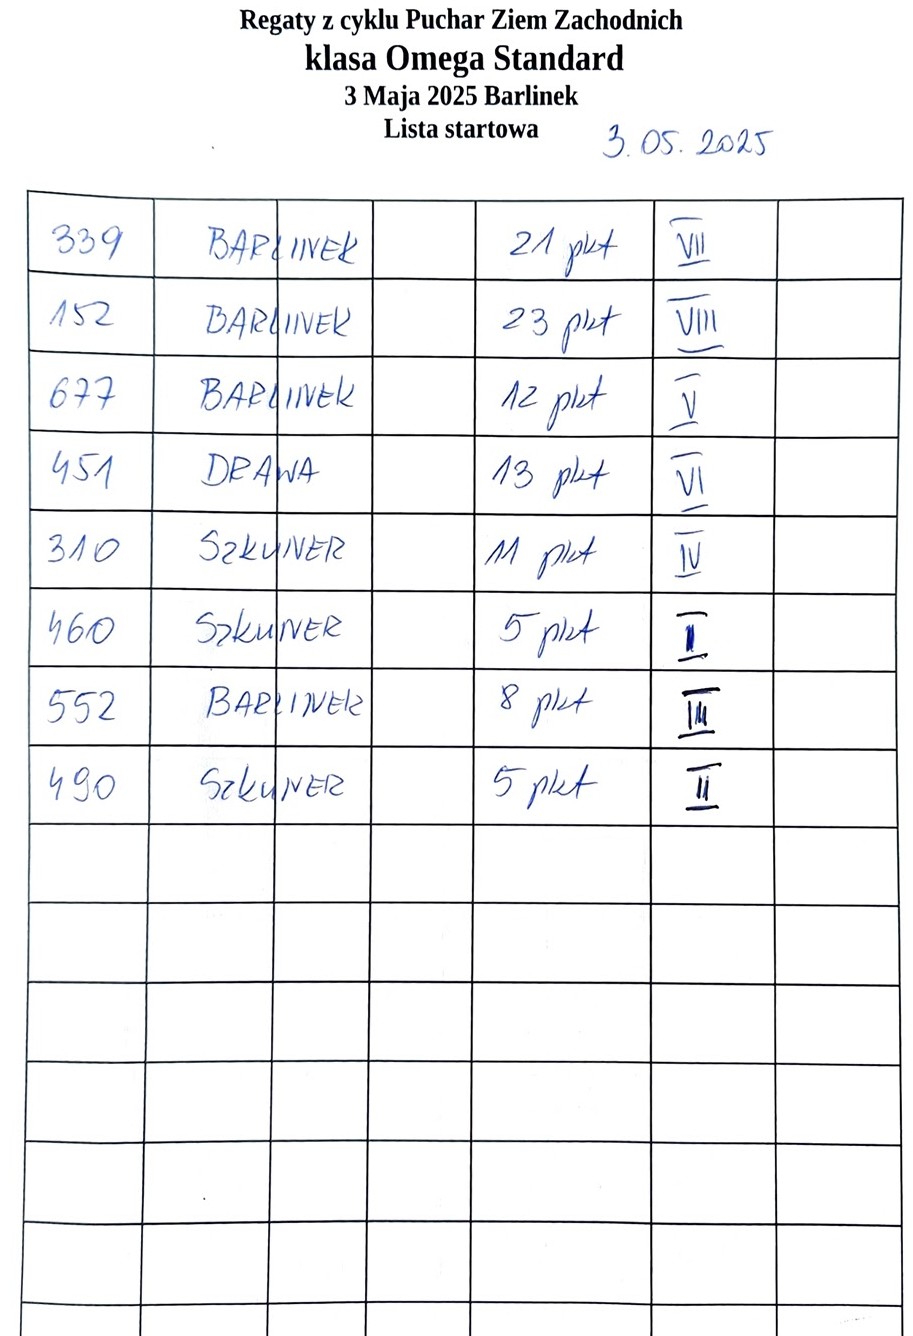 Regaty z cyklu Puchar Ziem Zachodnich
klasa Omega Standard
3 Maja 2025 Barlinek
Lista startowa 3.05.2025
339 BARLINEK 21 pkt VII
152 BARLINEK 23 pkt VIII
677 BARLINEK 12 pkt V
451 DRAWA 13 pkt VI
310 SZKUNER 11 pkt IV
460 SZKUNER 5 pkt I
552 BARLINEK 8 pkt III
490 SZKUNER 5 pkt II